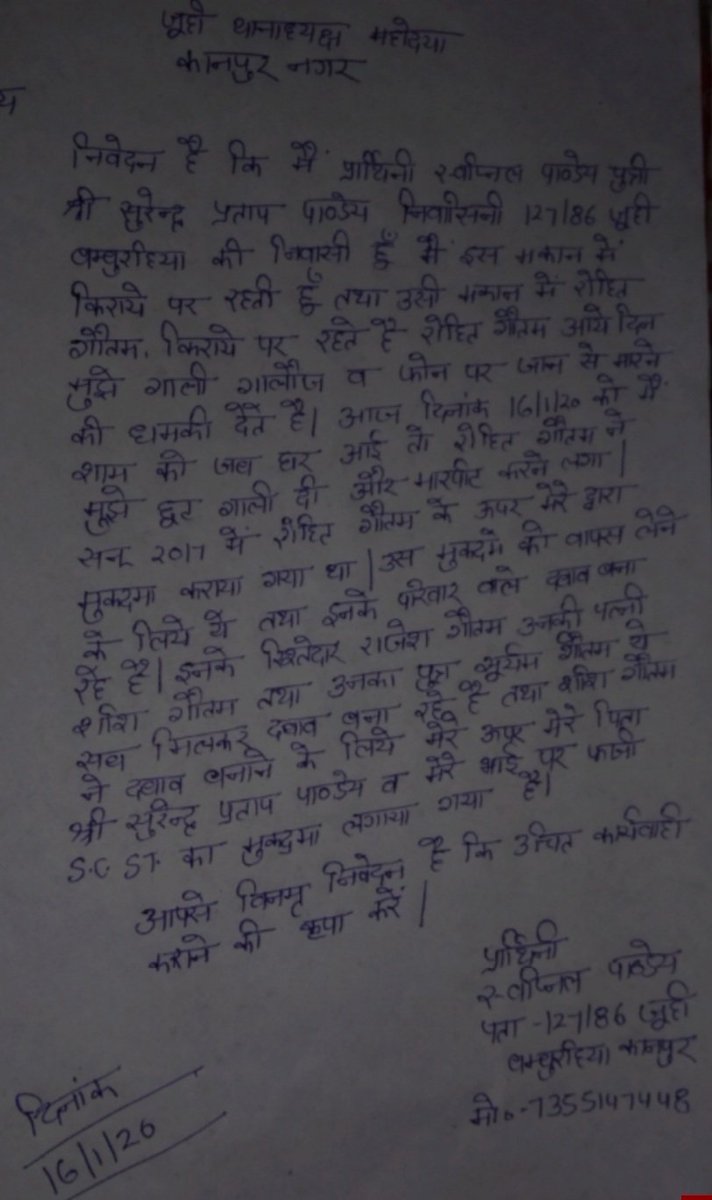 जूही थानाध्यक्ष महोदया
कानपुर नगर
य
निवेदन है कि मैं प्रार्थिनी स्वप्निल पाण्डेय पुत्री
श्री सुरेन्द्र प्रताप पाण्डेय निवासिनी 127/86 जूही
बम्बुरहिया की निवासी हूँ मैं इस मकान में
किराये पर रहती हूँ तथा उसी मकान में रोहित
गौतम. किराये पर रहते है रोहित गौतम आये दिन
मुझे गाली गालौज व फोन पर जान से मारने
की धमकी देते है। आज दिनांक 16/1/20 को मैं
शाम को जब घर आई तो रोहित गौतम ने
मुझे छूट गाली दी और मारपीट करने लगा।
सन् 2017 में रोहित गौतम के ऊपर मेरे द्वारा
मुकदमा कराया गया था। उस मुकदमे को वापस लेने
के लिये ये तथा इनके परिवार वाले दबाव बना
रहे है। इनके रिश्तेदार राजेश गौतम उनकी पत्नी
शशि गौतम तथा उनका पुत्र सूर्यम गौतम ये
सब मिलकर दबाव बना रहे है तथा शशि गौतम
ने दबाव बनाने के लिये मेरे ऊपर मेरे पिता
श्री सुरेन्द्र प्रताप पाण्डेय व मेरे भाई पर फर्जी
S.C ST. का मुकदमा लगाया गया है।
आपसे विनम्र निवेदन है कि उचित कार्यवाही
कराने की कृपा करें।
प्रार्थिनी
स्वप्निल पाण्डेय
पता -127/86 जूही
बम्बुरहिया कानपुर
मो०-7355147448
दिनांक
16/1/20